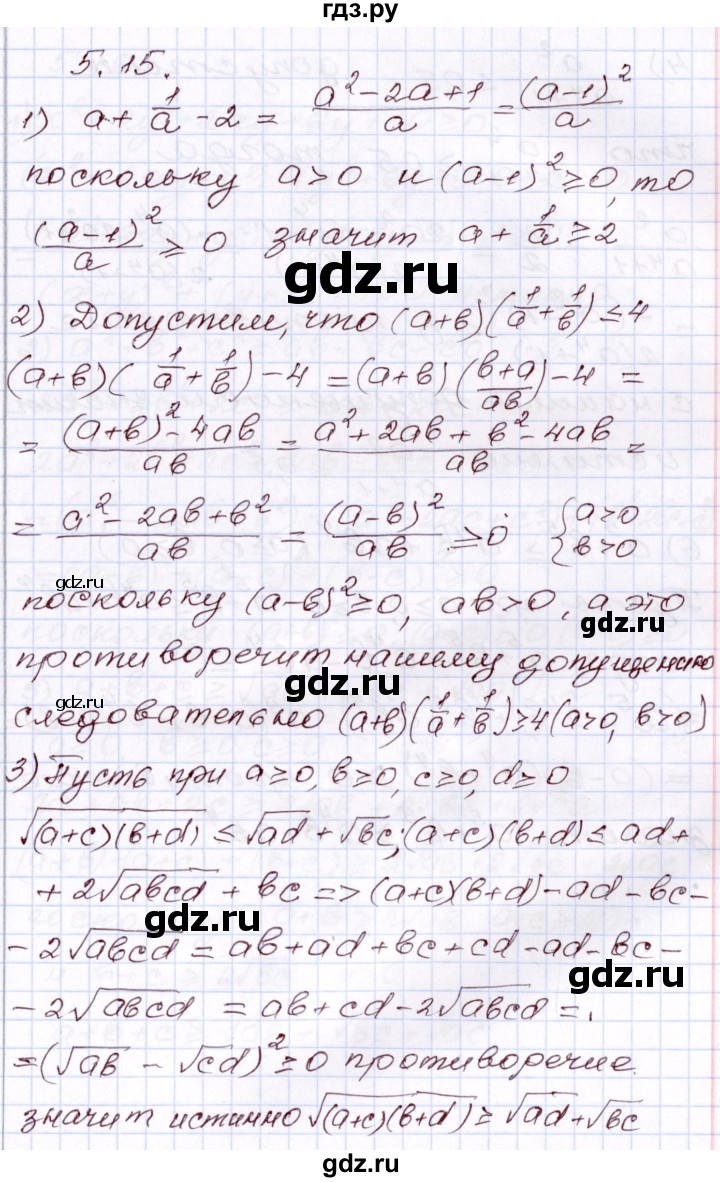 гдз.ру
5.15.
1) a + 1/a - 2 = (a² - 2a + 1)/a = (a-1)²/a
поскольку a > 0 и (a-1)² ≥ 0, то
(a-1)²/a ≥ 0 значит a + 1/a ≥ 2
2) Допустим, что (a+b)(1/a + 1/b) ≤ 4
(a+b)(1/a + 1/b) - 4 = (a+b)((b+a)/ab) - 4 =
= ((a+b)² - 4ab)/ab = (a² + 2ab + b² - 4ab)/ab =
= (a² - 2ab + b²)/ab = (a-b)²/ab ≥ 0 { a>0 b>0
gdz.ru
поскольку (a-b)² ≥ 0, ab > 0, а это
gdz.ru
противоречит нашему допущению
gdz.ru
gdz.ru
следовательно (a+b)(1/a + 1/b) ≥ 4 (a>0, b>0)
3) Пусть при a ≥ 0, b ≥ 0, c ≥ 0, d ≥ 0
√((a+c)(b+d)) ≤ √ad + √bc; (a+c)(b+d) ≤ ad +
gdz.ru
+ 2√abcd + bc => (a+c)(b+d) - ad - bc -
gdz.ru
- 2√abcd = ab + ad + bc + cd - ad - bc -
gdz.ru
- 2√abcd = ab + cd - 2√abcd =
= (√ab - √cd)² ≥ 0 противоречие.
значит истинно √((a+c)(b+d)) ≥ √ad + √bc
gdz.ru